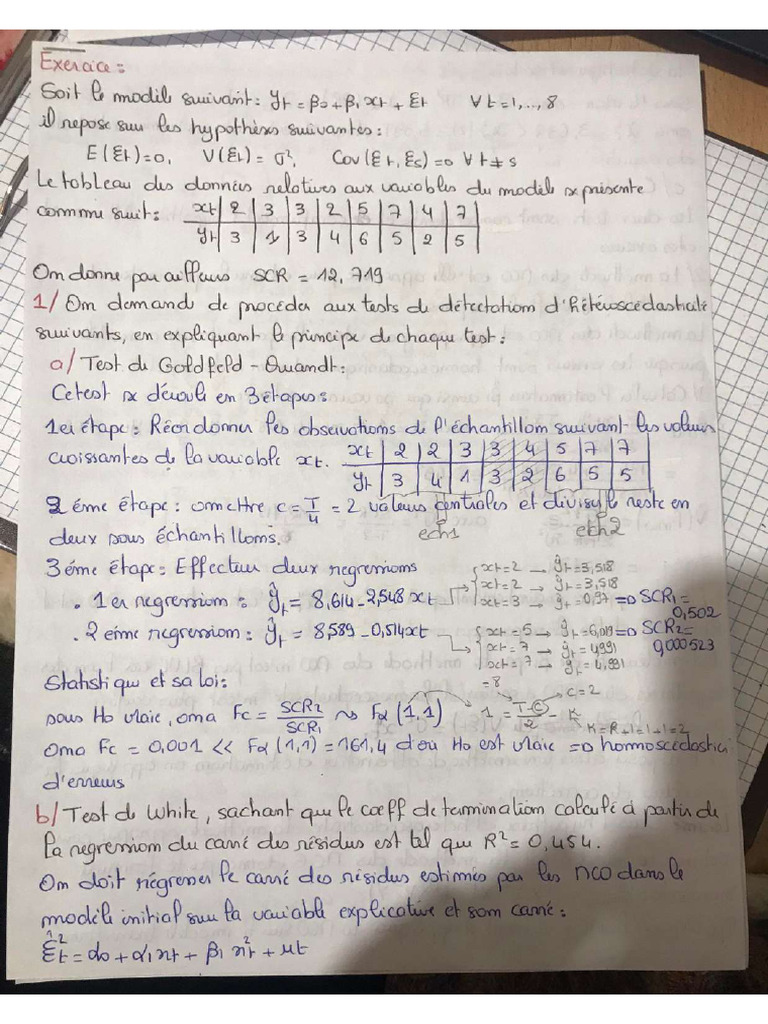 Exercice :
Soit le modèle suivant : yt = β0 + β1xt + Et ∀t = 1,..,8
il repose sur les hypothèses suivantes :
E(Et)=0, V(Et) = σ², Cov(Et, Es)=0 ∀ t≠s
Le tableau des données relatives aux variables du modèle se présente
comme suit : xt | 2 | 3 | 3 | 2 | 5 | 7 | 4 | 7
yt | 3 | 1 | 3 | 4 | 6 | 5 | 2 | 5
On donne par ailleurs SCR = 12,719
1/ On demande de procéder aux tests de détectation d'Hétéroscédasticité
suivants, en expliquant le principe de chaque test :
a/ Test de Goldfeld - Quandt :
Ce test se déroule en 3 étapes :
1ère étape : Réordonner les observations de l'échantillon suivant les valeurs
croissantes de la variable xt. xt | 2 | 2 | 3 | 3 | 4 | 5 | 7 | 7
yt | 3 | 4 | 1 | 3 | 2 | 6 | 5 | 5
2ème étape : omettre c = T/4 = 2 valeurs centrales et diviser le reste en
deux sous échantillons. ech1 ech2
3ème étape : Effectuer deux regressions
. 1er regression : ŷt = 8,614 - 2,548xt
xt=2 → ŷt = 3,518
xt=2 → ŷt = 3,518
xt=3 → ŷt = 0,97 => SCR1 = 0,502
. 2ème regression : ŷt = 8,589 - 0,514xt
xt=5 → ŷt = 6,019 => SCR2 = 0,000523
xt=7 → ŷt = 4,991
xt=7 → ŷt = 4,991
Statistique et sa loi :
sous H0 vraie, on a Fc = SCR2/SCR1 ~> Fα(1,1) 1 = (T-C)/2 - K
= 8 c = 2
K = R+1 = 1+1 = 2
On a Fc = 0,001 << Fα(1,1) = 161,4 d'où H0 est vraie => homoscédastici
d'erreurs
b/ Test de White, sachant que le coeff determination calculé à partir de
la regression du carré des résidus est tel que R² = 0,454.
On doit régresser le carré des résidus estimés par les nco dans le
modèle initial sur la variable explicative et son carré :
Êt² = α0 + α1xt + β1xt² + μt